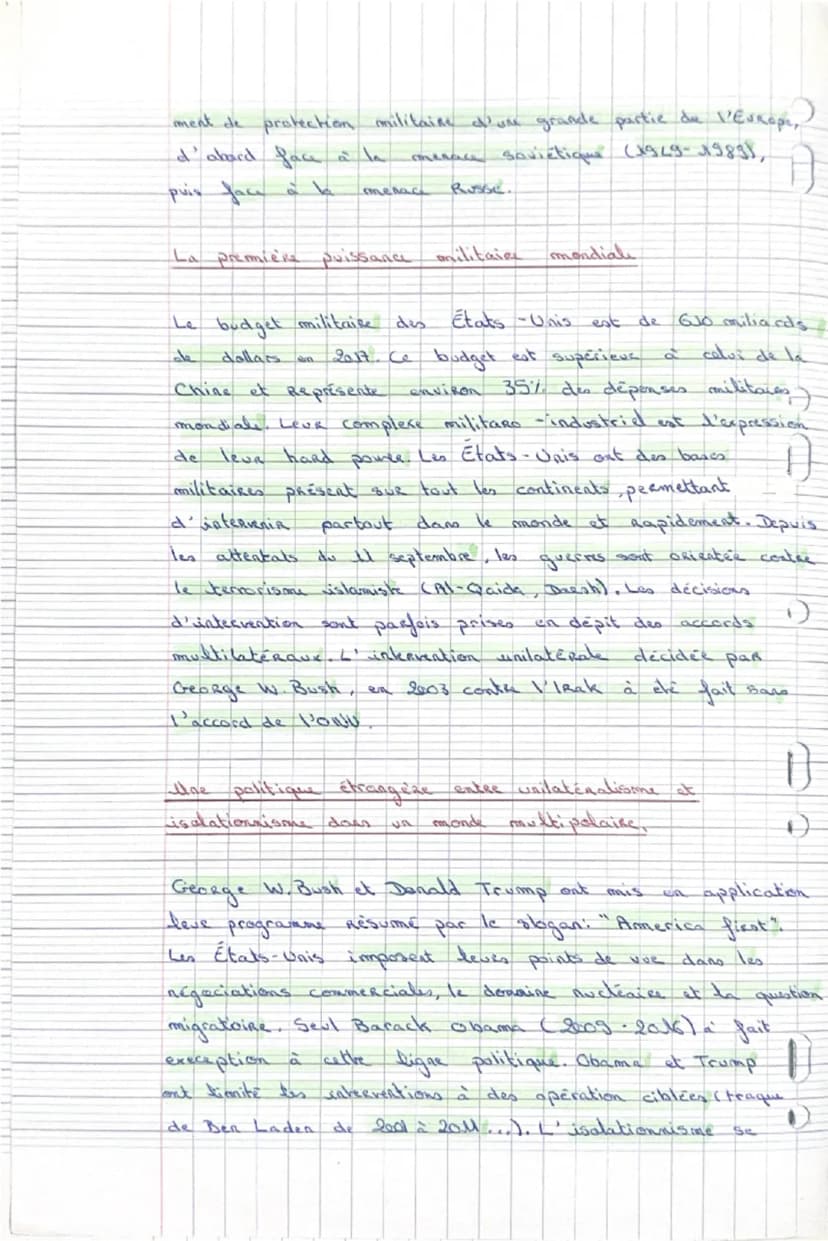 ment de protection militaire d'une grande partie de l'Europe,
d'abord face à la menace soviétique (1949-1989),
puis face à la menace Russe.
La première puissance militaire mondiale
Le budget militaire des États-Unis est de 610 miliards
de dollars en 2017. Ce budget est supérieur à celui de la
Chine et Représente environ 35% des dépenses militaires
mondiale. Leur complexe militaro-industriel est l'expression
de leur hard power. Les États-Unis ont des bases
militaires présent sur tout les continents, permettant
d'intervenir partout dans le monde et rapidement. Depuis
les attentats du 11 septembre, les guerres sont orientée contre
le terrorisme islamiste (Al-Qaida, Daesh). Les décisions
d'intervention sont parfois prises en dépit des accords
multilatéraux. L'intervention unilatérale décidée par
George W. Bush, en 2003 contre l'Irak à été fait sans
l'accord de l'ONU.
Une politique étrangère entre unilatéralisme et
isolationnisme dans un monde multipolaire.
George W. Bush et Donald Trump ont mis en application
leur programme résumé par le slogan: "America first".
Les États-Unis imposent leurs points de vue dans les
négociations commerciales, le domaine nucléaire et la question
migratoire. Seul Barack Obama (2009-2016) à fait
exeception à cette ligne politique. Obama et Trump
ont limité les interventions à des opération ciblées (traque
de Ben Laden de 2001 à 2011...). L'isolationnisme se